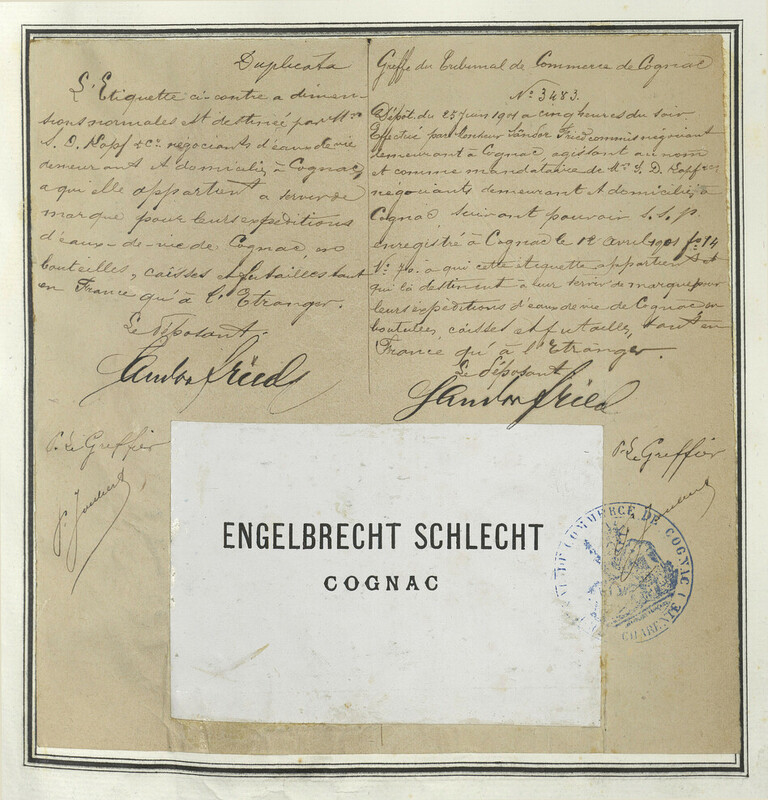 Duplicata
L'Etiquette ci-contre a dimen-
sions normales est destinée par Mrs
S. D. Kopf & Cie négociants d'eaux de vie
demeurant et domiciliés à Cognac,
a qui elle appartient a servir de
marque pour leurs expéditions
d'eaux-de-vie de Cognac, en
bouteilles, caisses et futailles, tant
en France qu'à l'Etranger.
Le déposant.
Sandor Fried
P. Le Greffier
Greffe du Tribunal de Commerce de Cognac
No 3483.
Dépôt du 25 Juin 1901 a cinq heures du soir.
Effectué par Monsieur Sándor Fried commis négociant
demeurant à Cognac, agissant au nom
et comme mandataire de Mrs S. D. Kopf & Cie
négociants demeurant et domiciliés à
Cognac suivant pouvoir S. S. P.
enregistré à Cognac le 12 avril 1901 fo 14
No 70. a qui cette étiquette appartient et
qui la destinent à leur servir de marque pour
leurs expéditions d'eaux de vie de Cognac en
bouteilles, caisses et futailles, tant en
France qu'à l'Etranger.
Le déposant
Sandor Fried
P. Le Greffier
ENGELBRECHT SCHLECHT
COGNAC
DE COMMERCE DE COGNAC
CHARENTE